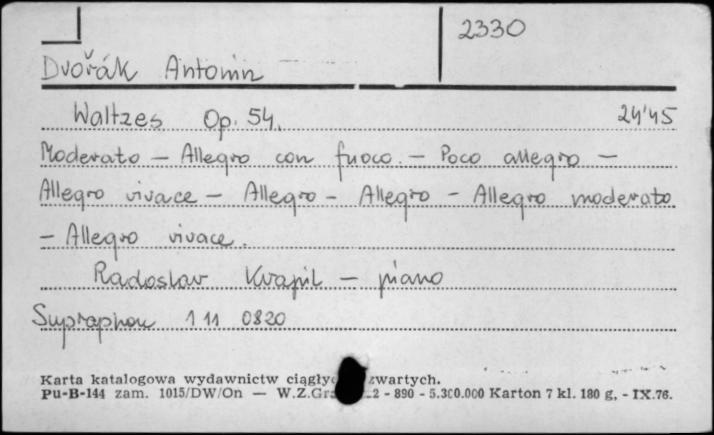 2330
Dvořák Antonin
Waltzes Op. 54. 24'45
Moderato – Allegro con fuoco. – Poco allegro –
Allegro vivace – Allegro – Allegro – Allegro moderato
– Allegro vivace.
Radoslav Kvapil – piano
Supraphon 1 11 0820
Karta katalogowa wydawnictw ciągłyc zwartych.
Pu-B-144 zam. 1015/DW/On — W.Z.Gr 2 - 890 - 5.300.000 Karton 7 kl. 180 g. - IX.76.